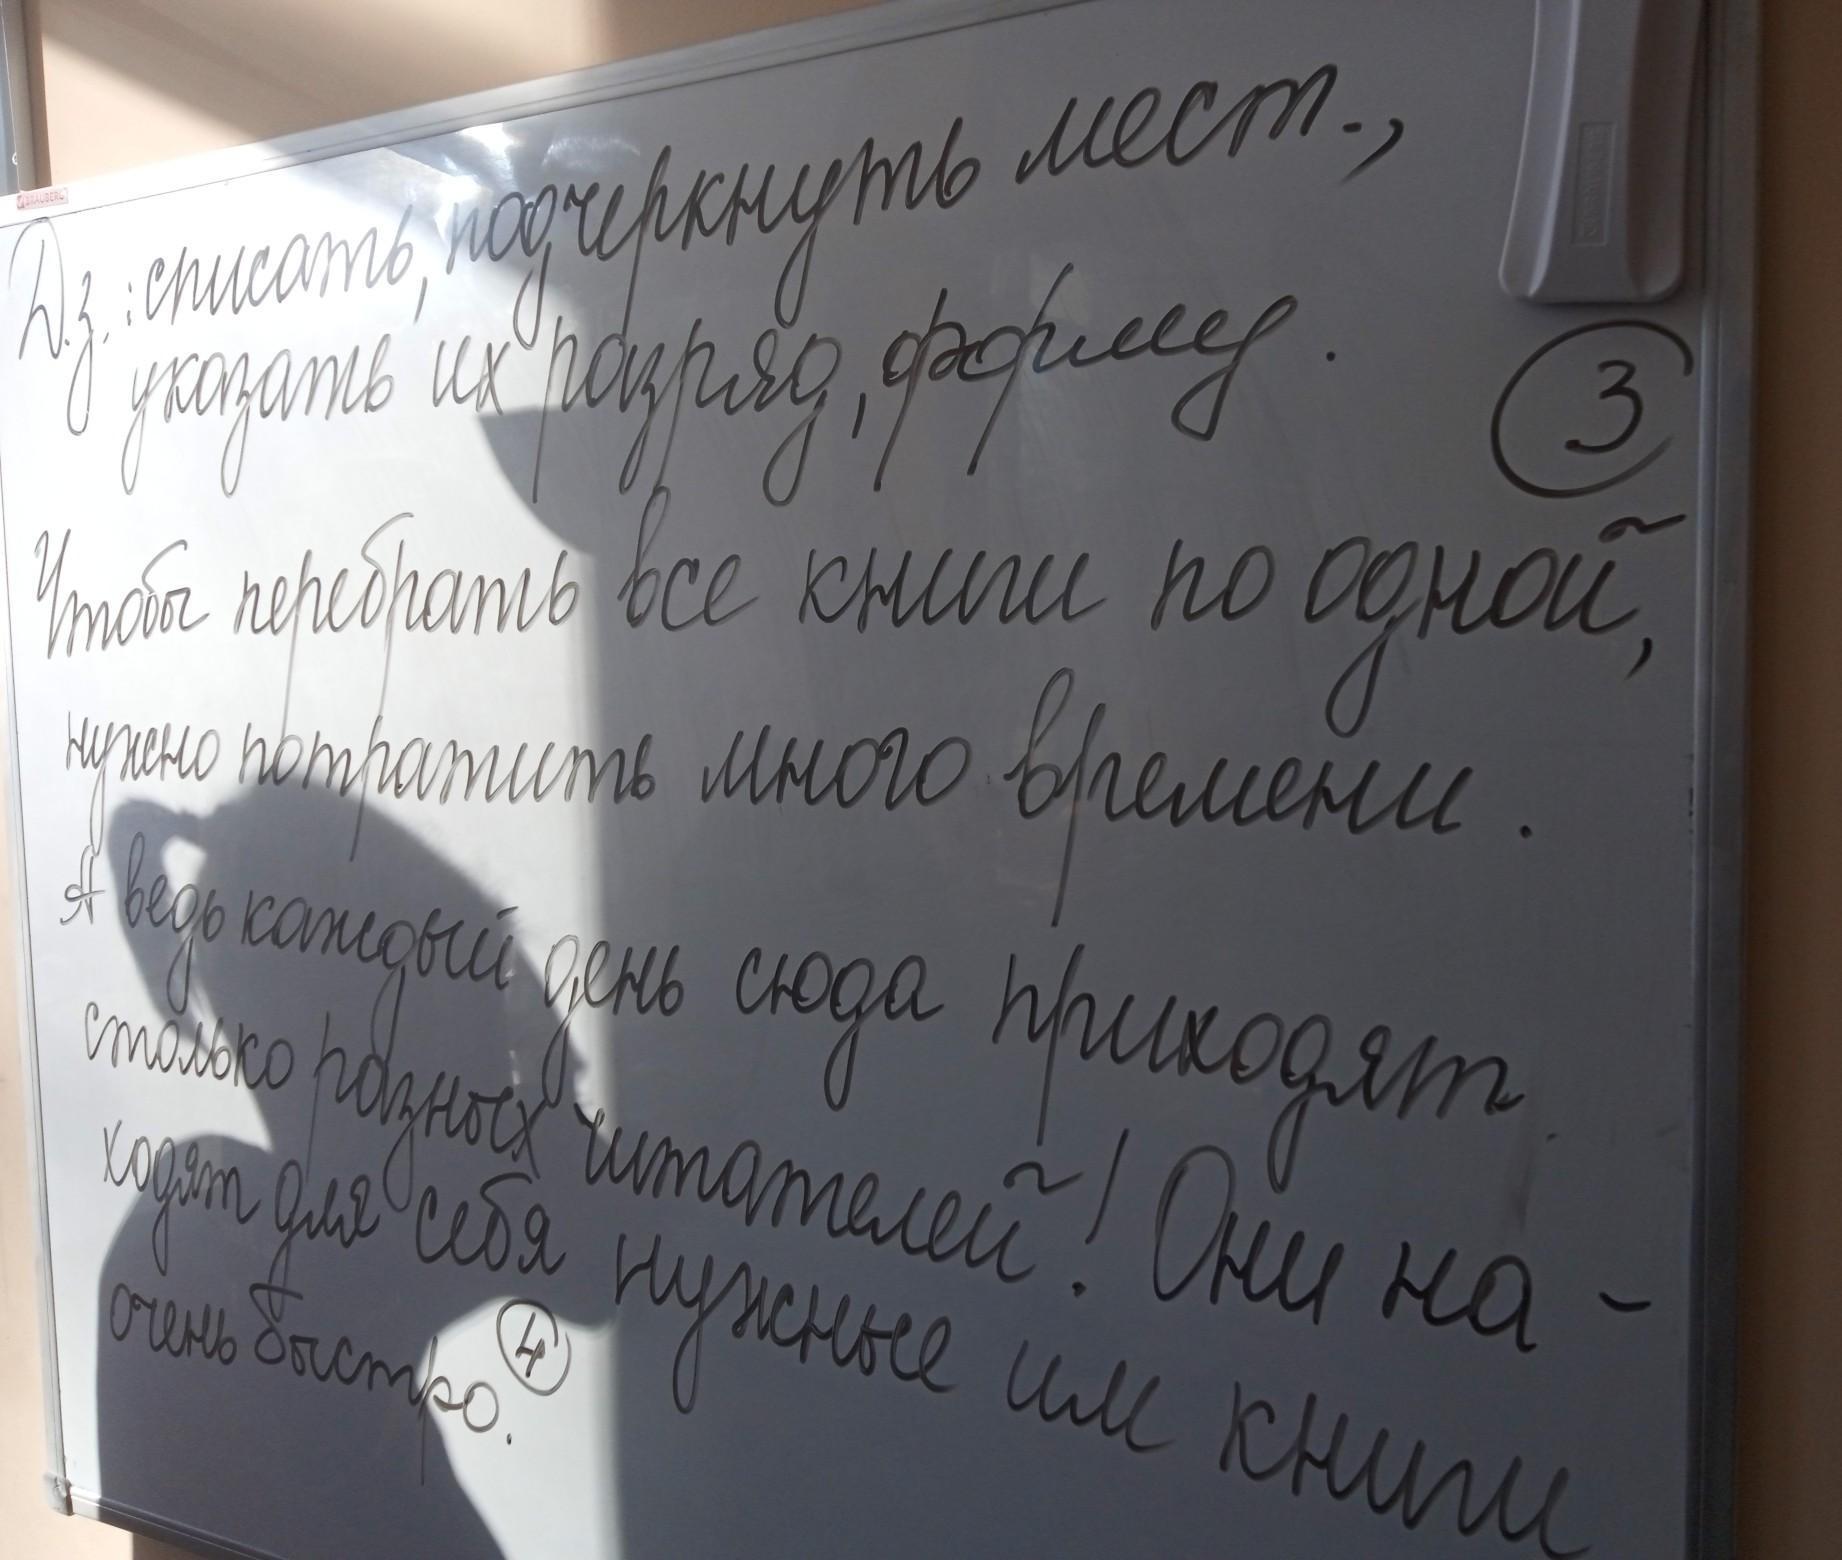 BRAUBERG
Д.з.: списать, подчеркнуть мест.,
указать их разряд, форму.
3
Чтобы перебрать все книги по одной,
нужно потратить много времени.
А ведь каждый день сюда приходят
столько разных читателей! Они на-
ходят для себя нужные им книги
очень быстро. 4